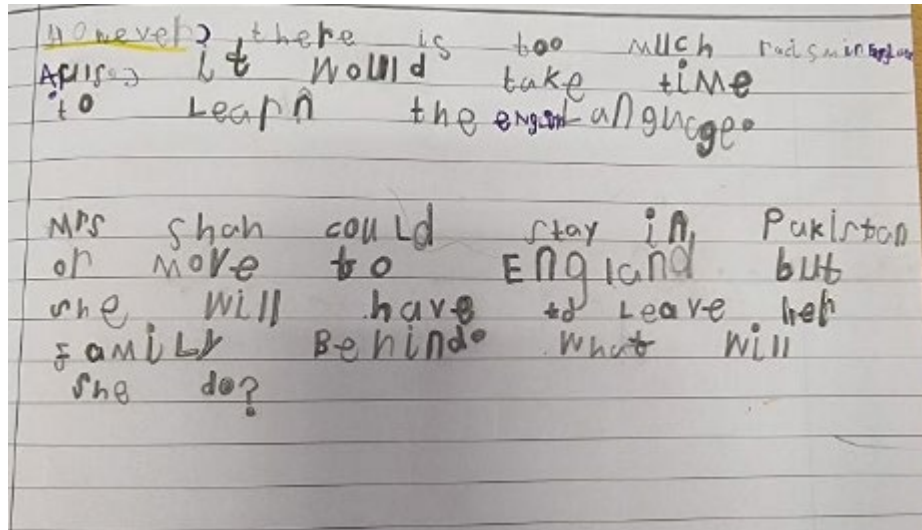 However, there is too much racism in England
Also, it would take time
to Learn the english Language.
Mrs Shah could stay in Pakistan
or move to England but
she will have to Leave her
familly Behind. What will
she do?